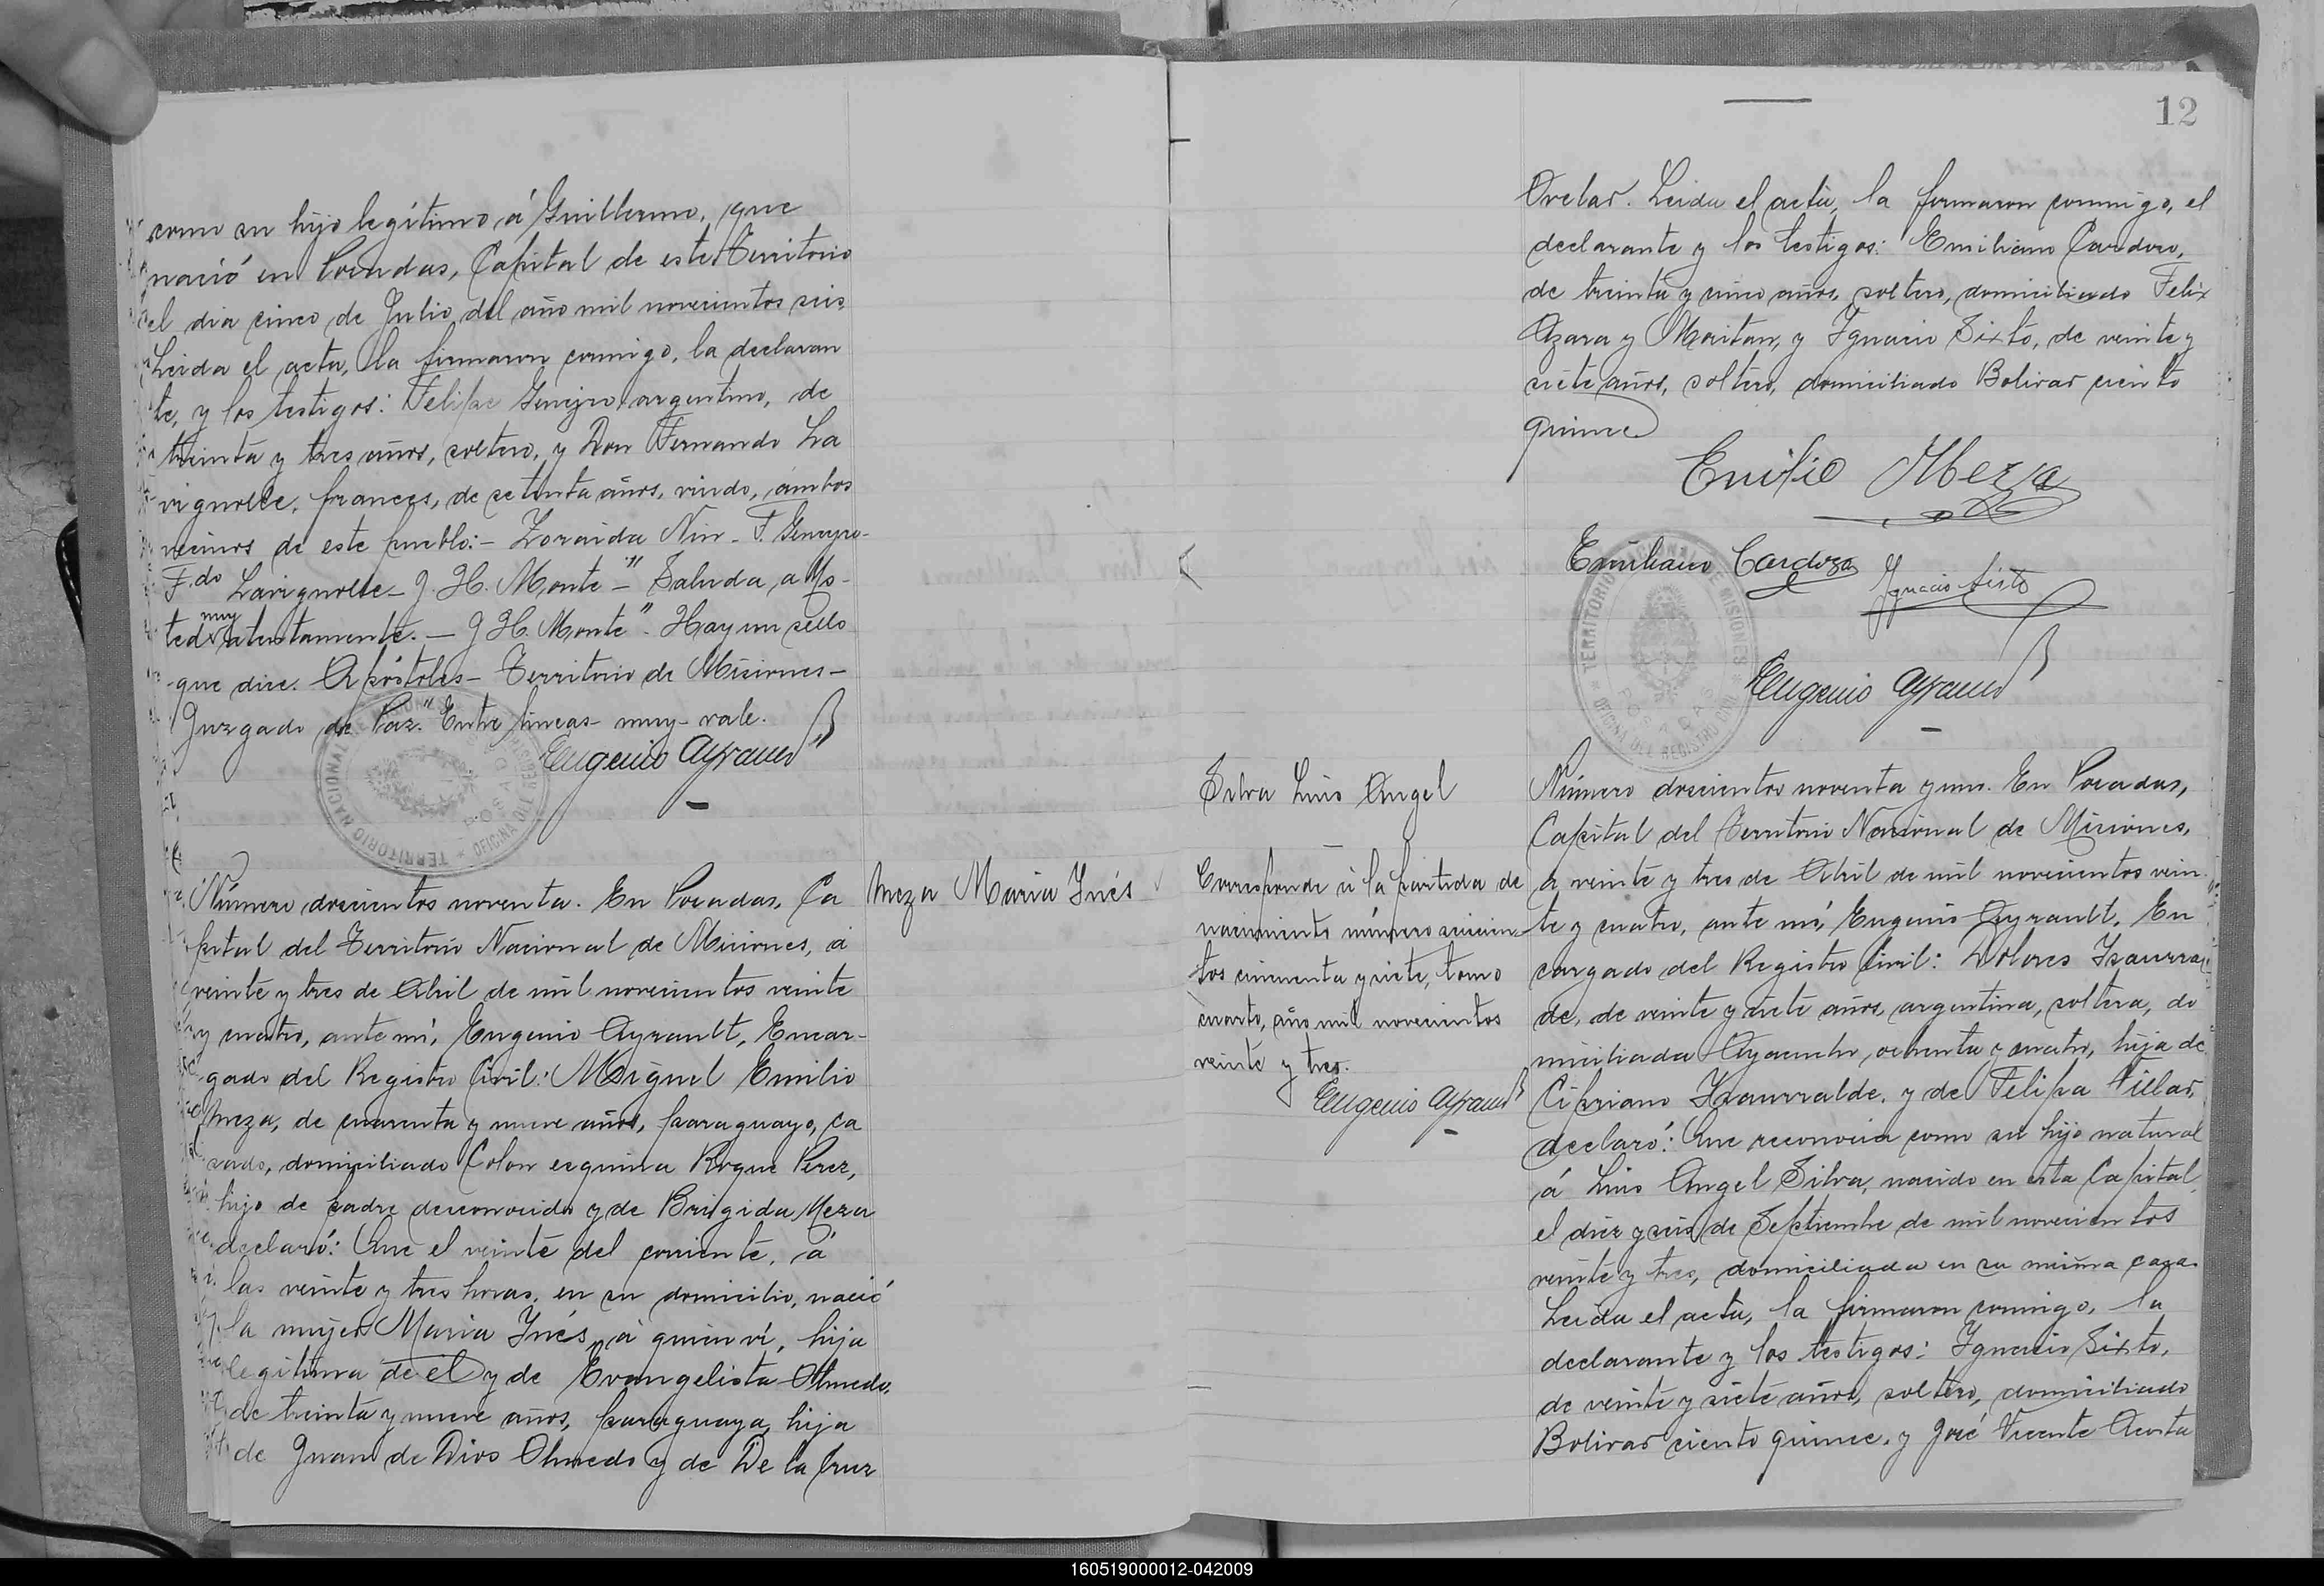 como su hijo legítimo á Guillermo, que
nació en Posadas, Capital de este Territorio
el dia cinco de Julio del año mil novecientos seis.
Leida el acta, la firmaron conmigo, la declaran
te, y los testigos: Felipe Geneyro argentino, de
treinta y tres años, soltero, y Don Fernando La
vignolle, frances, de setenta años, viudo, ámbos
vecinos de este pueblo:- Zoraida Nin - F. Geneyro-
F.do Lavignolle - J. H. Monte -" Saluda a Us-
muy
ted atentamente. - J H. Monte". Hay un sello
que dice. Apóstoles - Territorio de Misiones -
Juzgado de Paz." Entre lineas - muy - vale.
Eugenio Ayrault
TERRITORIO NACIONAL DE MISIONES * OFICINA DEL REGISTRO CIVIL *
POSADAS
Número doscientos noventa. En Posadas, Ca
pital del Territorio Nacional de Misiones, á
veinte y tres de Abril de mil novecientos veinte
y cuatro, ante mí, Eugenio Ayrault, Encar-
gado del Registro Civil: Miguel Emilio
Meza, de cuarenta y nueve años, paraguayo, ca
sado, domiciliado Colon esquina Roque Perez,
hijo de padre desconocido y de Brigida Meza
declaró: Que el veinte del corriente, á
las veinte y tres horas, en su domicilio, nació
la mujer Maria Inés, á quien ví, hija
legítima de él y de Evangelista Olmedo,
de treinta y nueve años, paraguaya, hija
de Juan de Dios Olmedo y de De la Cruz
Meza Maria Inés
12
Ovelar. Leida el acta, la firmaron conmigo, el
declarante y los testigos: Emiliano Cardozo,
de treinta y cinco años, soltero, domiciliado Felix
Azara y Moritan, y Ignacio Sixto, de veinte y
siete años, soltero, domiciliado Bolivar ciento
quince
Emilio Meza
Emiliano Cardozo
Ignacio Sixto
TERRITORIO NACIONAL DE MISIONES * OFICINA DEL REGISTRO CIVIL *
POSADAS
Eugenio Ayrault
Silva Luis Angel
Corresponde á la partida de
nacimiento número seiscien-
tos cincuenta y siete, tomo
cuarto, año mil novecientos
veinte y tres.
Eugenio Ayrault
Número doscientos noventa y uno. En Posadas,
Capital del Territorio Nacional de Misiones,
á veinte y tres de Abril de mil novecientos vein
te y cuatro, ante mí, Eugenio Ayrault, En
cargado del Registro Civil: Dolores Isaurral
de, de veinte y siete años, argentina, soltera, do
miciliada Ayacucho, ochenta y cuatro, hija de
Cipriano Isaurralde, y de Felipa Villar,
declaró: Que reconocia como su hijo natural
á Luis Angel Silva, nacido en esta Capital
el diez y seis de Septiembre de mil novecientos
veinte y tres, domiciliada en su misma casa.
Leida el acta, la firmaron conmigo, la
declarante y los testigos: Ignacio Sixto,
de veinte y siete años, soltero, domiciliado
Bolivar ciento quince, y José Vicente Acosta
160519000012-042009